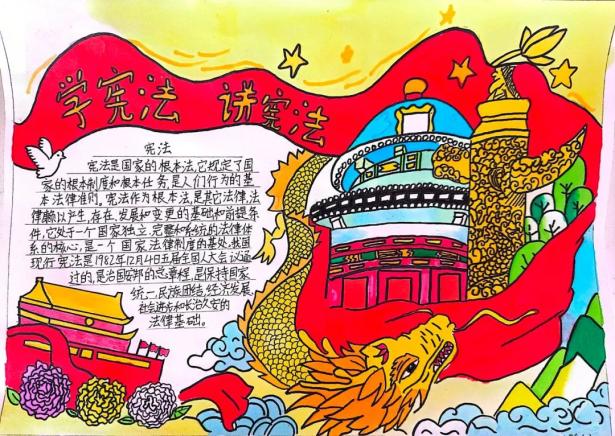 学宪法 讲宪法
宪法
宪法是国家的根本法,它规定了国
家的根本制度和根本任务,是人们行为的基
本法律准则。宪法作为根本法,是其它法律、法
律赖以产生、存在、发展和变更的基础和前提条
件,它处于一个国家独立、完整和系统的法律体
系的核心,是一个国家法律制度的基处,我国
现行宪法是1982年12月4日五届全国人大会议通
过的,是治国安邦的总章程,是保持国家
统一、民族团结、经济发展
社会进步和长治久安的
法律基础。